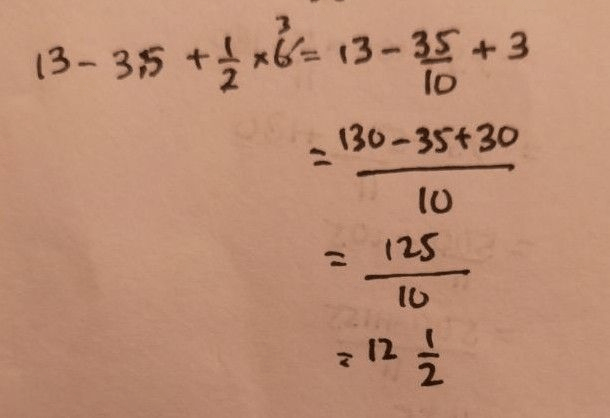 13 - 3,5 + 1/2 × 6 3 = 13 - 35/10 + 3
= 130 - 35 + 30 / 10
= 125/10
= 12 1/2